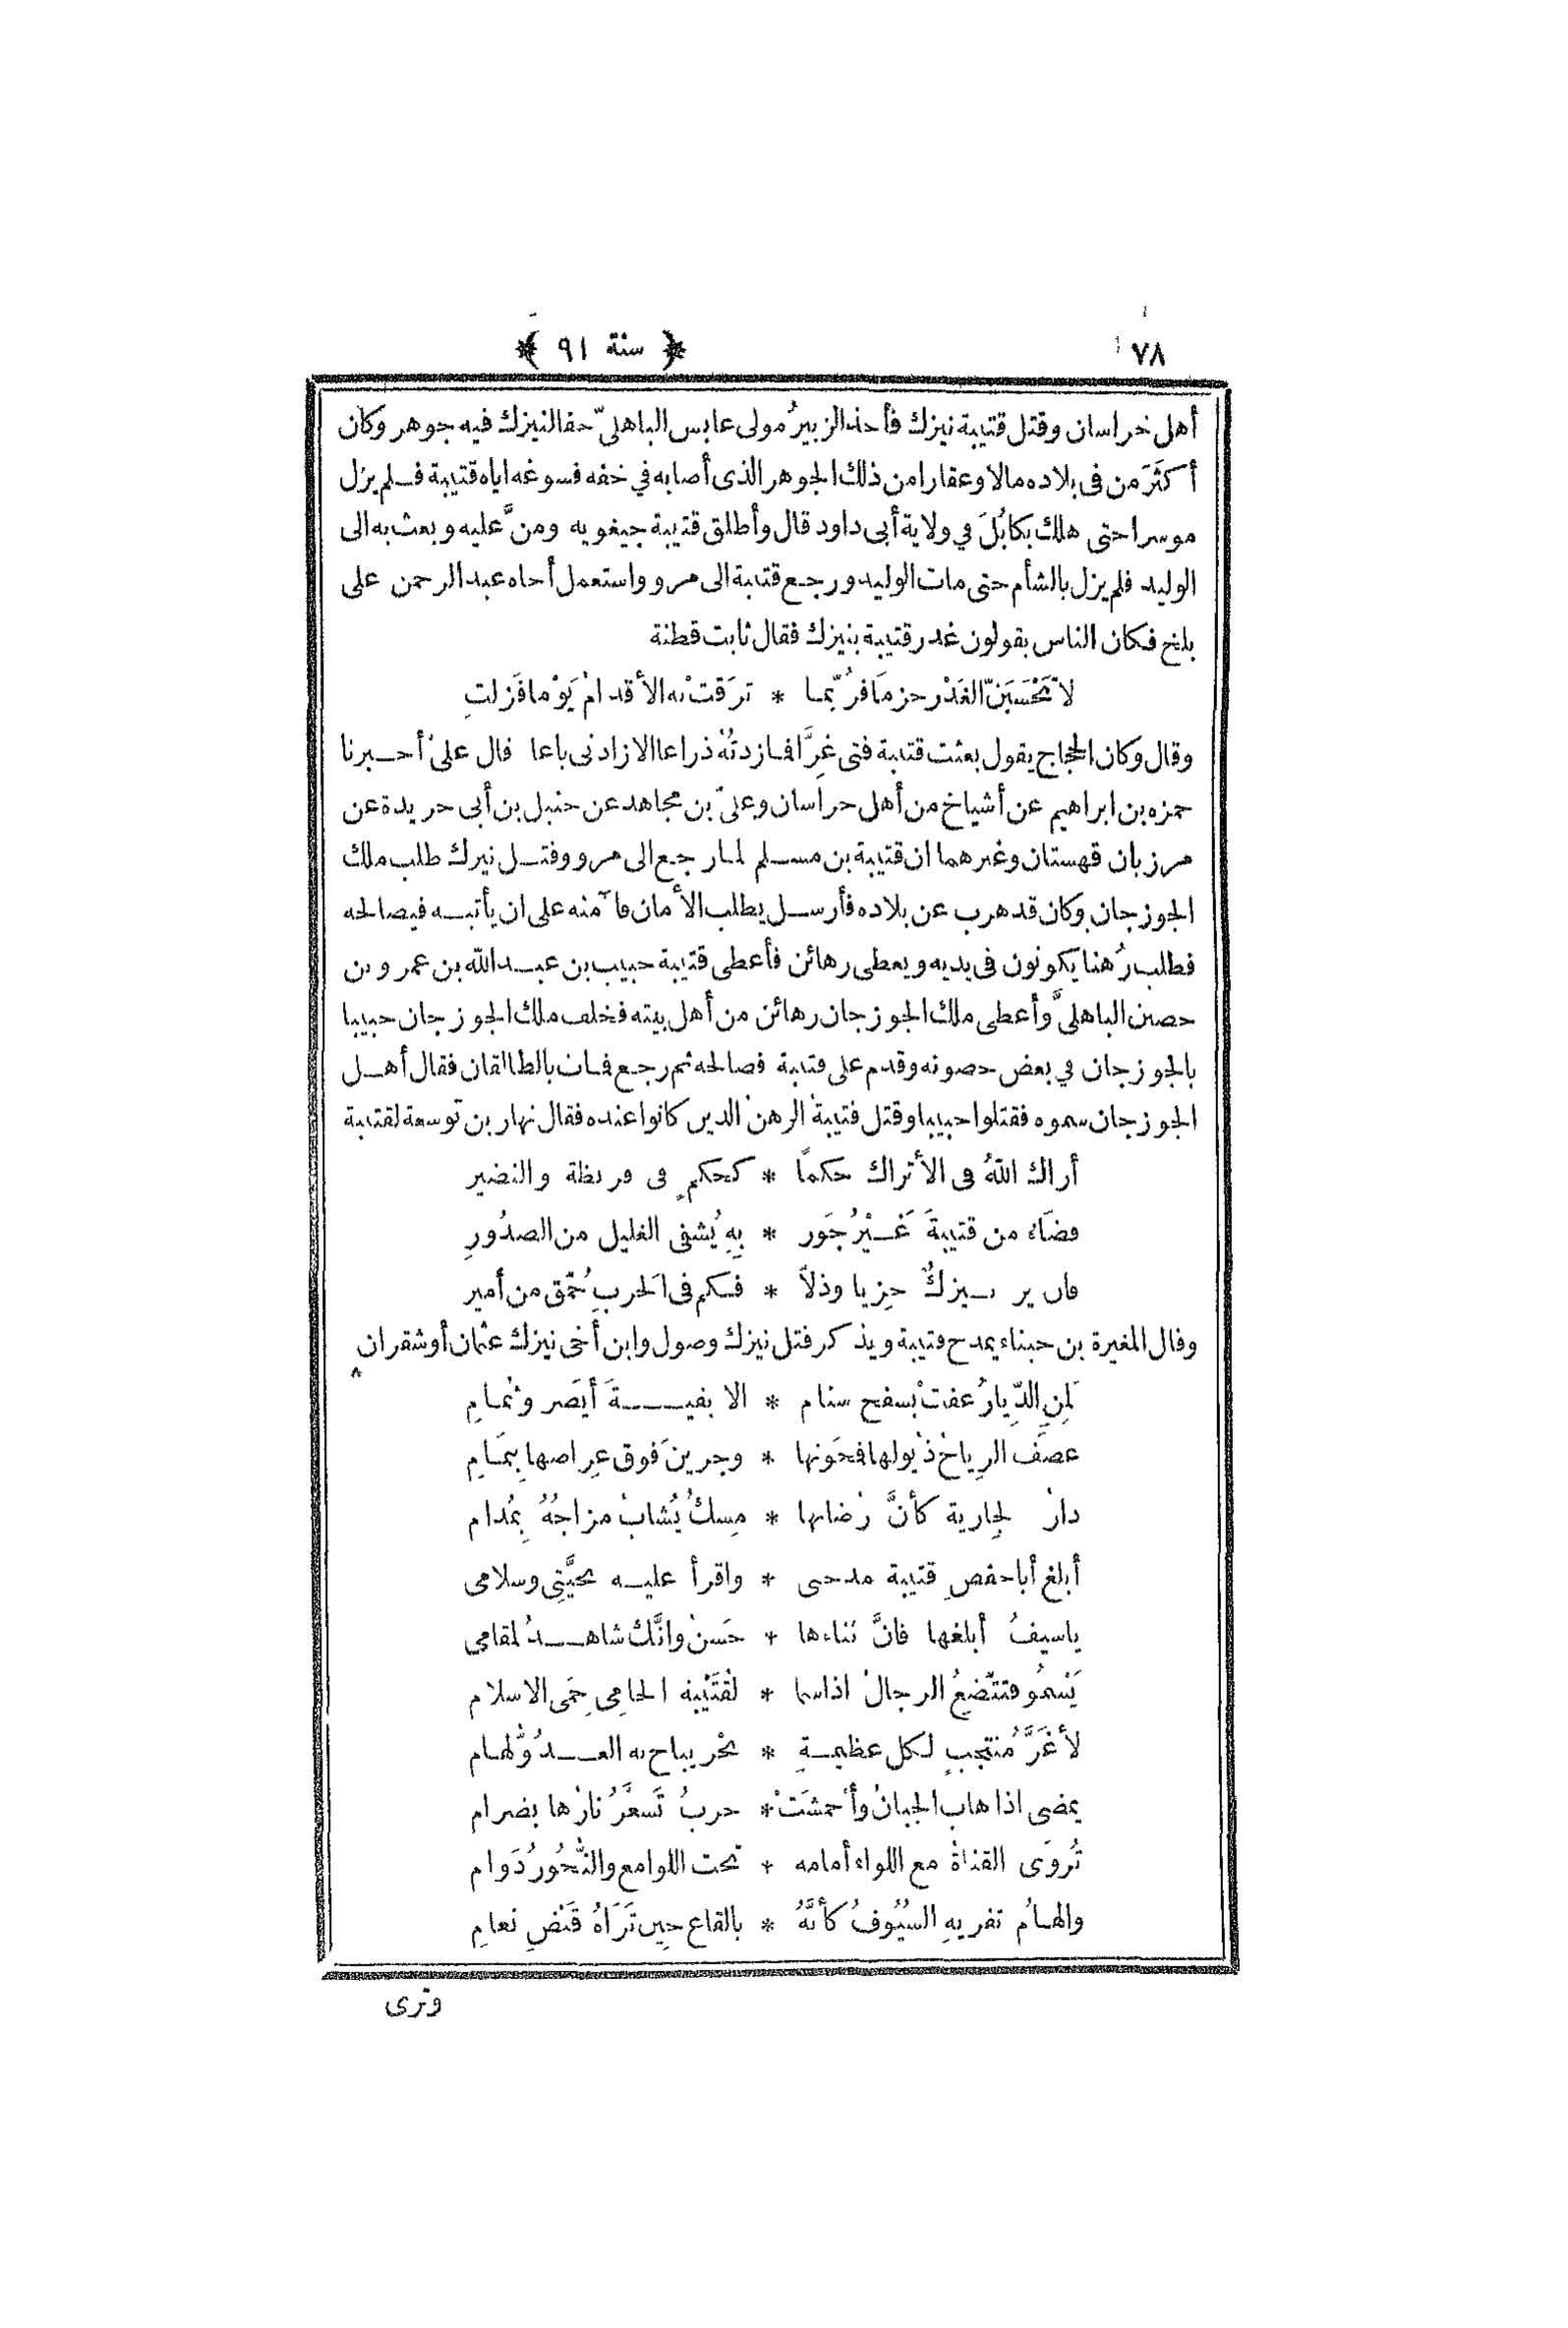 ٧٨ ﴿ سنة ٩١ ﴾
أهل خراسان وقتل قتيبة نيزك فأخذ الزبيرُ مولى عابس الباهلىّ خفا لنيزك فيه جوهر وكان
أكثَرَ من فى بلاده مالا وعقارا من ذلك الجوهر الذى أصابه في خفه فسوغه اياه قتيبة فلم يزل
موسرا حتى هلك بكابُلَ في ولاية أبى داود قال وأطلق قتيبة جيغويه ومنَّ عليه وبعث به الى
الوليد فلم يزل بالشأم حتى مات الوليد ورجع قتيبة الى مرو واستعمل أخاه عبد الرحمن على
بلخ فكان الناس يقولون غدر قتيبة بنيزك فقال ثابت قطنة
لا تَحْسَبَنّ الغَدْر حزمَا فرُبّما * ترَقتْ به الأقدامُ يَوْما فَزلتِ
وقال وكان الحجاج يقول بعثت قتيبة فتى غِرًّا فما زدتُهُ ذراعا الا زادنى باعا قال علىّ أخبرنا
حمزه بن ابراهيم عن أشياخ من أهل خراسان وعلىّ بن مجاهد عن حنبل بن أبى حريدة عن
مرزبان قهستان وغيرهما ان قتيبة بن مسلم لما رجع الى مرو وقتل نيزك طلب ملك
الجوزجان وكان قد هرب عن بلاده فأرسل يطلب الأمان فآمنه على ان يأتيه فيصالحه
فطلب رُهنا يكونون فى يديه ويعطى رهائن فأعطى قتيبة حبيب بن عبد الله بن عمرو بن
حصين الباهلىَّ وأعطى ملك الجوزجان رهائن من أهل بيته فخلف ملك الجوزجان حبيبا
بالجوزجان في بعض حصونه وقدم على قتيبة فصالحه ثم رجع فمات بالطالقان فقال أهل
الجوزجان سموه فقتلوا حبيبا وقتل قتيبةُ الرهنَ الذين كانوا عنده فقال نهار بن توسعة لقتيبة
أراك اللهُ فى الأتراك حكمًا * كحكمٍ فى قريظة والنضير
قضَاء من قتيبةَ غَيْرُ جَور * بِهِ يُشفى الغليل من الصدُورِ
فان ير نيزكٌ خِزيا وذلاّ * فكم فى الحَربِ حُمّق من أمير
وقال المغيرة بن حبناء يمدح قتيبة ويذكر قتل نيزك وصول وابن أخى نيزك عثمان أو شقران
لَمِنِ الدِّيارُ عفتْ بسفح سنام * الا بقيةَ أيصَر وثُمامِ
عصَفَ الرِياحُ ذيولها فمحَونها * وجرينَ فوق عِراصها بِتمَامِ
دارٌ لجِارية كأنَّ رُضابها * مِسكٌ يُشابُ مزاجُهُ بِمُدام
أبلغ أبا حفصِ قتيبة مدحى * واقرأ عليه تحيَّتِى وسلامى
ياسيفُ أبلغها فانَّ ثناءها * حَسنٌ وانَّك شاهدُ لمقامي
يَسْمُو فتتَّضِعُ الرجالُ اذا سما * لقُتَيْبة الحامِى حِمَى الاسلام
لأغَرَّ مُنتجبٍ لكل عظيمةٍ * نحْر يباح به العدُوُّ لهُام
يمضى اذا هاب الجبانُ وأحمشَتْ * حربُ تَسعَّرُ نارُها بضرام
تُروَى القناةُ مع اللواء أمامه * تحت اللوامع والنُّحُورُ دَوام
والهامُ تفريهِ السُيُوفُ كأنَّهُ * بالقاع حِين تَرَاهُ قَنْضِ نَعامِ
وترى